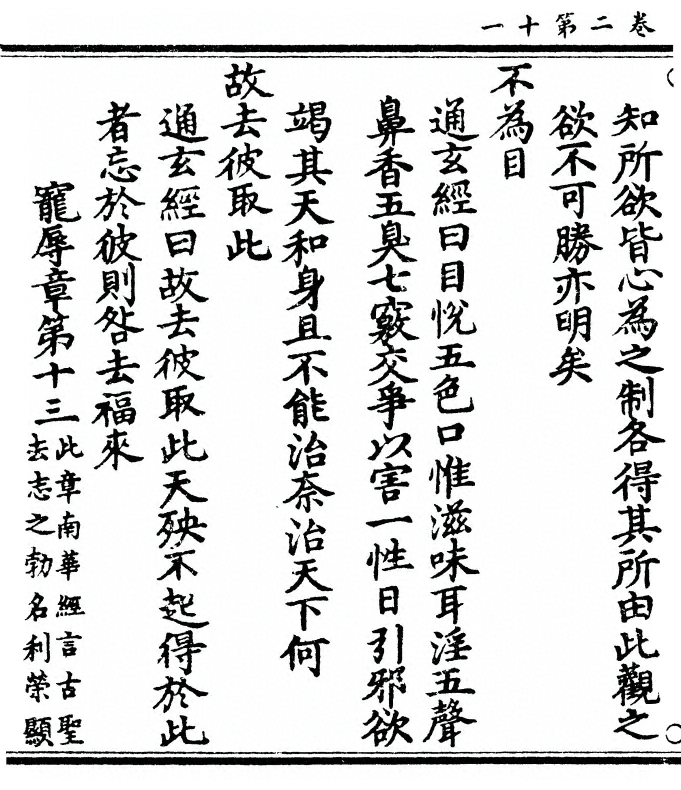 卷二第十一
知所欲皆心為之制各得其所由此觀之
欲不可勝亦明矣
不為目
通玄經曰目悅五色口惟滋味耳淫五聲
鼻香五臭七竅交爭以害一性日引邪欲
竭其天和身且不能治奈治天下何
故去彼取此
通玄經曰故去彼取此天殃不起得於此
者忘於彼則咎去福來
寵辱章第十三此章南華經言古聖
去志之勃名利榮顯